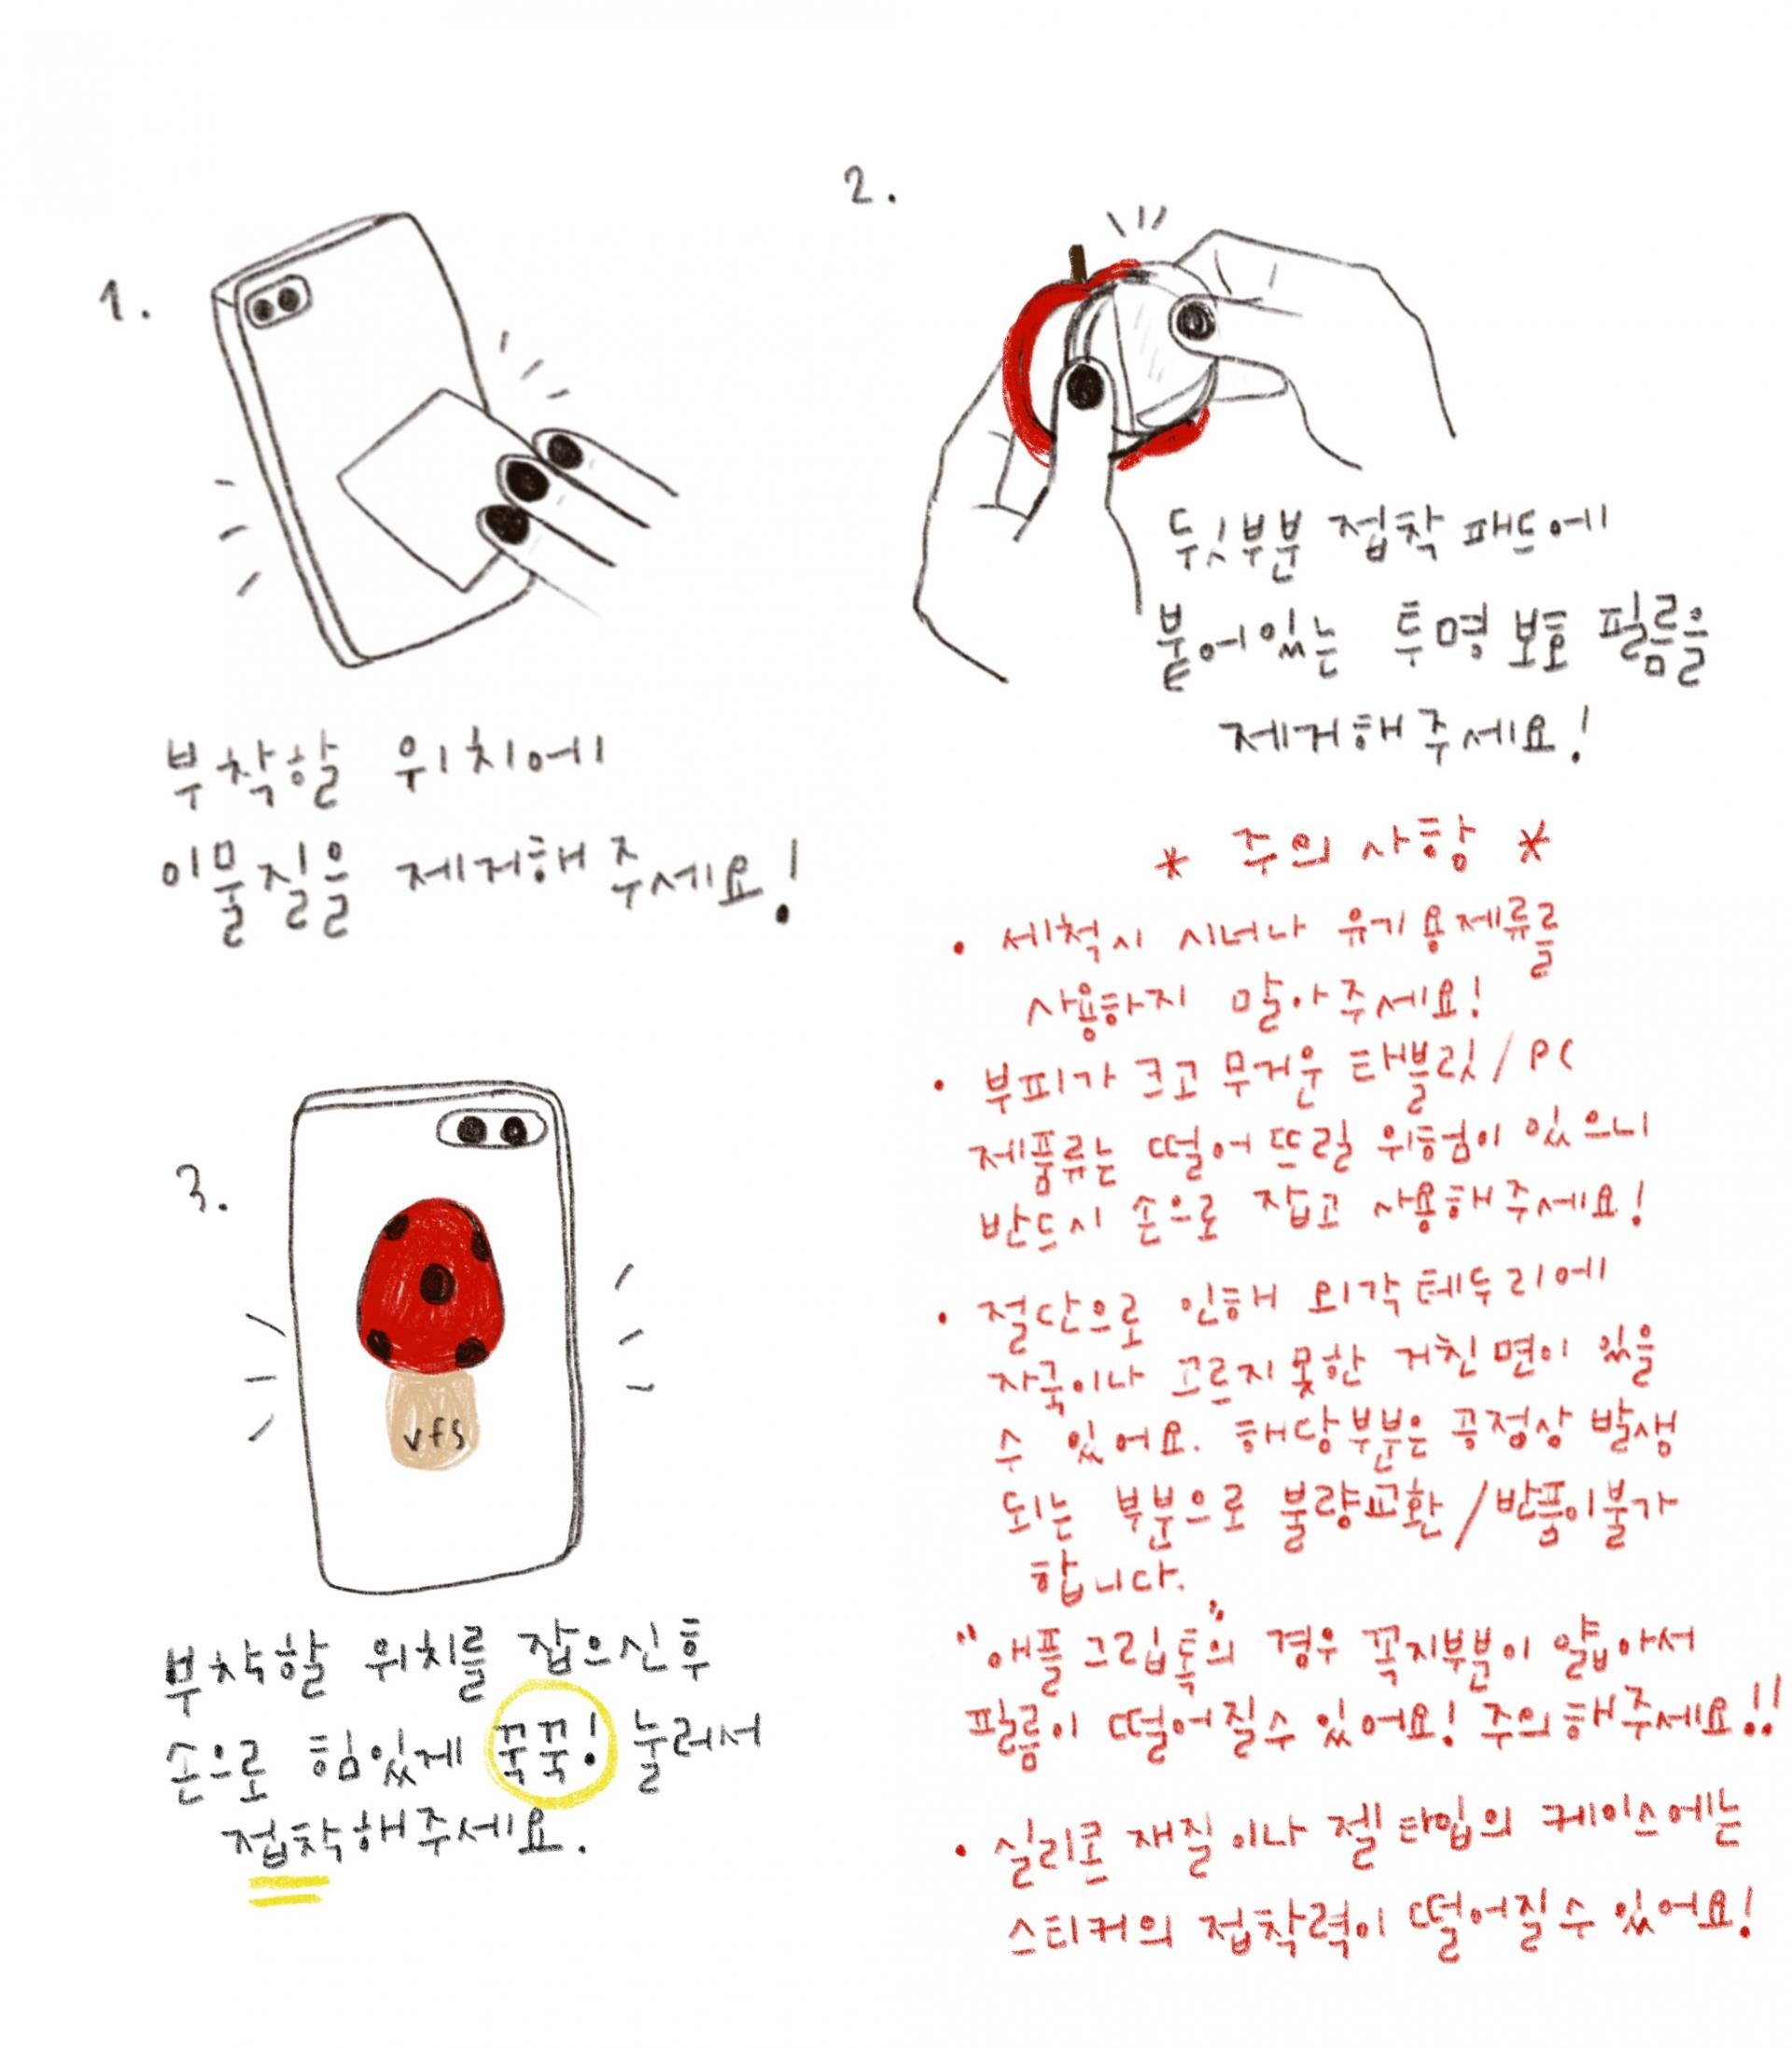 1.
부착할 위치에
이물질을 제거해주세요!
2.
뒷부분 접착 패드에
붙어있는 투명 보호 필름을
제거해주세요!
3.
vfs
부착할 위치를 잡으신 후
손으로 힘있게 꾹꾹! 눌러서
접착해주세요.
* 주의 사항 *
• 세척시 시너나 유기용제류를
사용하지 말아주세요!
• 부피가 크고 무거운 태블릿/PC
제품류는 떨어뜨릴 위험이 있으니
반드시 손으로 잡고 사용해주세요!
• 절단으로 인해 외각 테두리에
자국이나 고르지 못한 거친면이 있을
수 있어요. 해당부분은 공정상 발생
되는 부분으로 불량교환/반품이불가
합니다.
"애플그립톡"의 경우 꼭지부분이 얇아서
필름이 떨어질수 있어요! 주의해주세요!!
• 실리콘 재질이나 젤타입의 케이스에는
스티커의 접착력이 떨어질수 있어요!